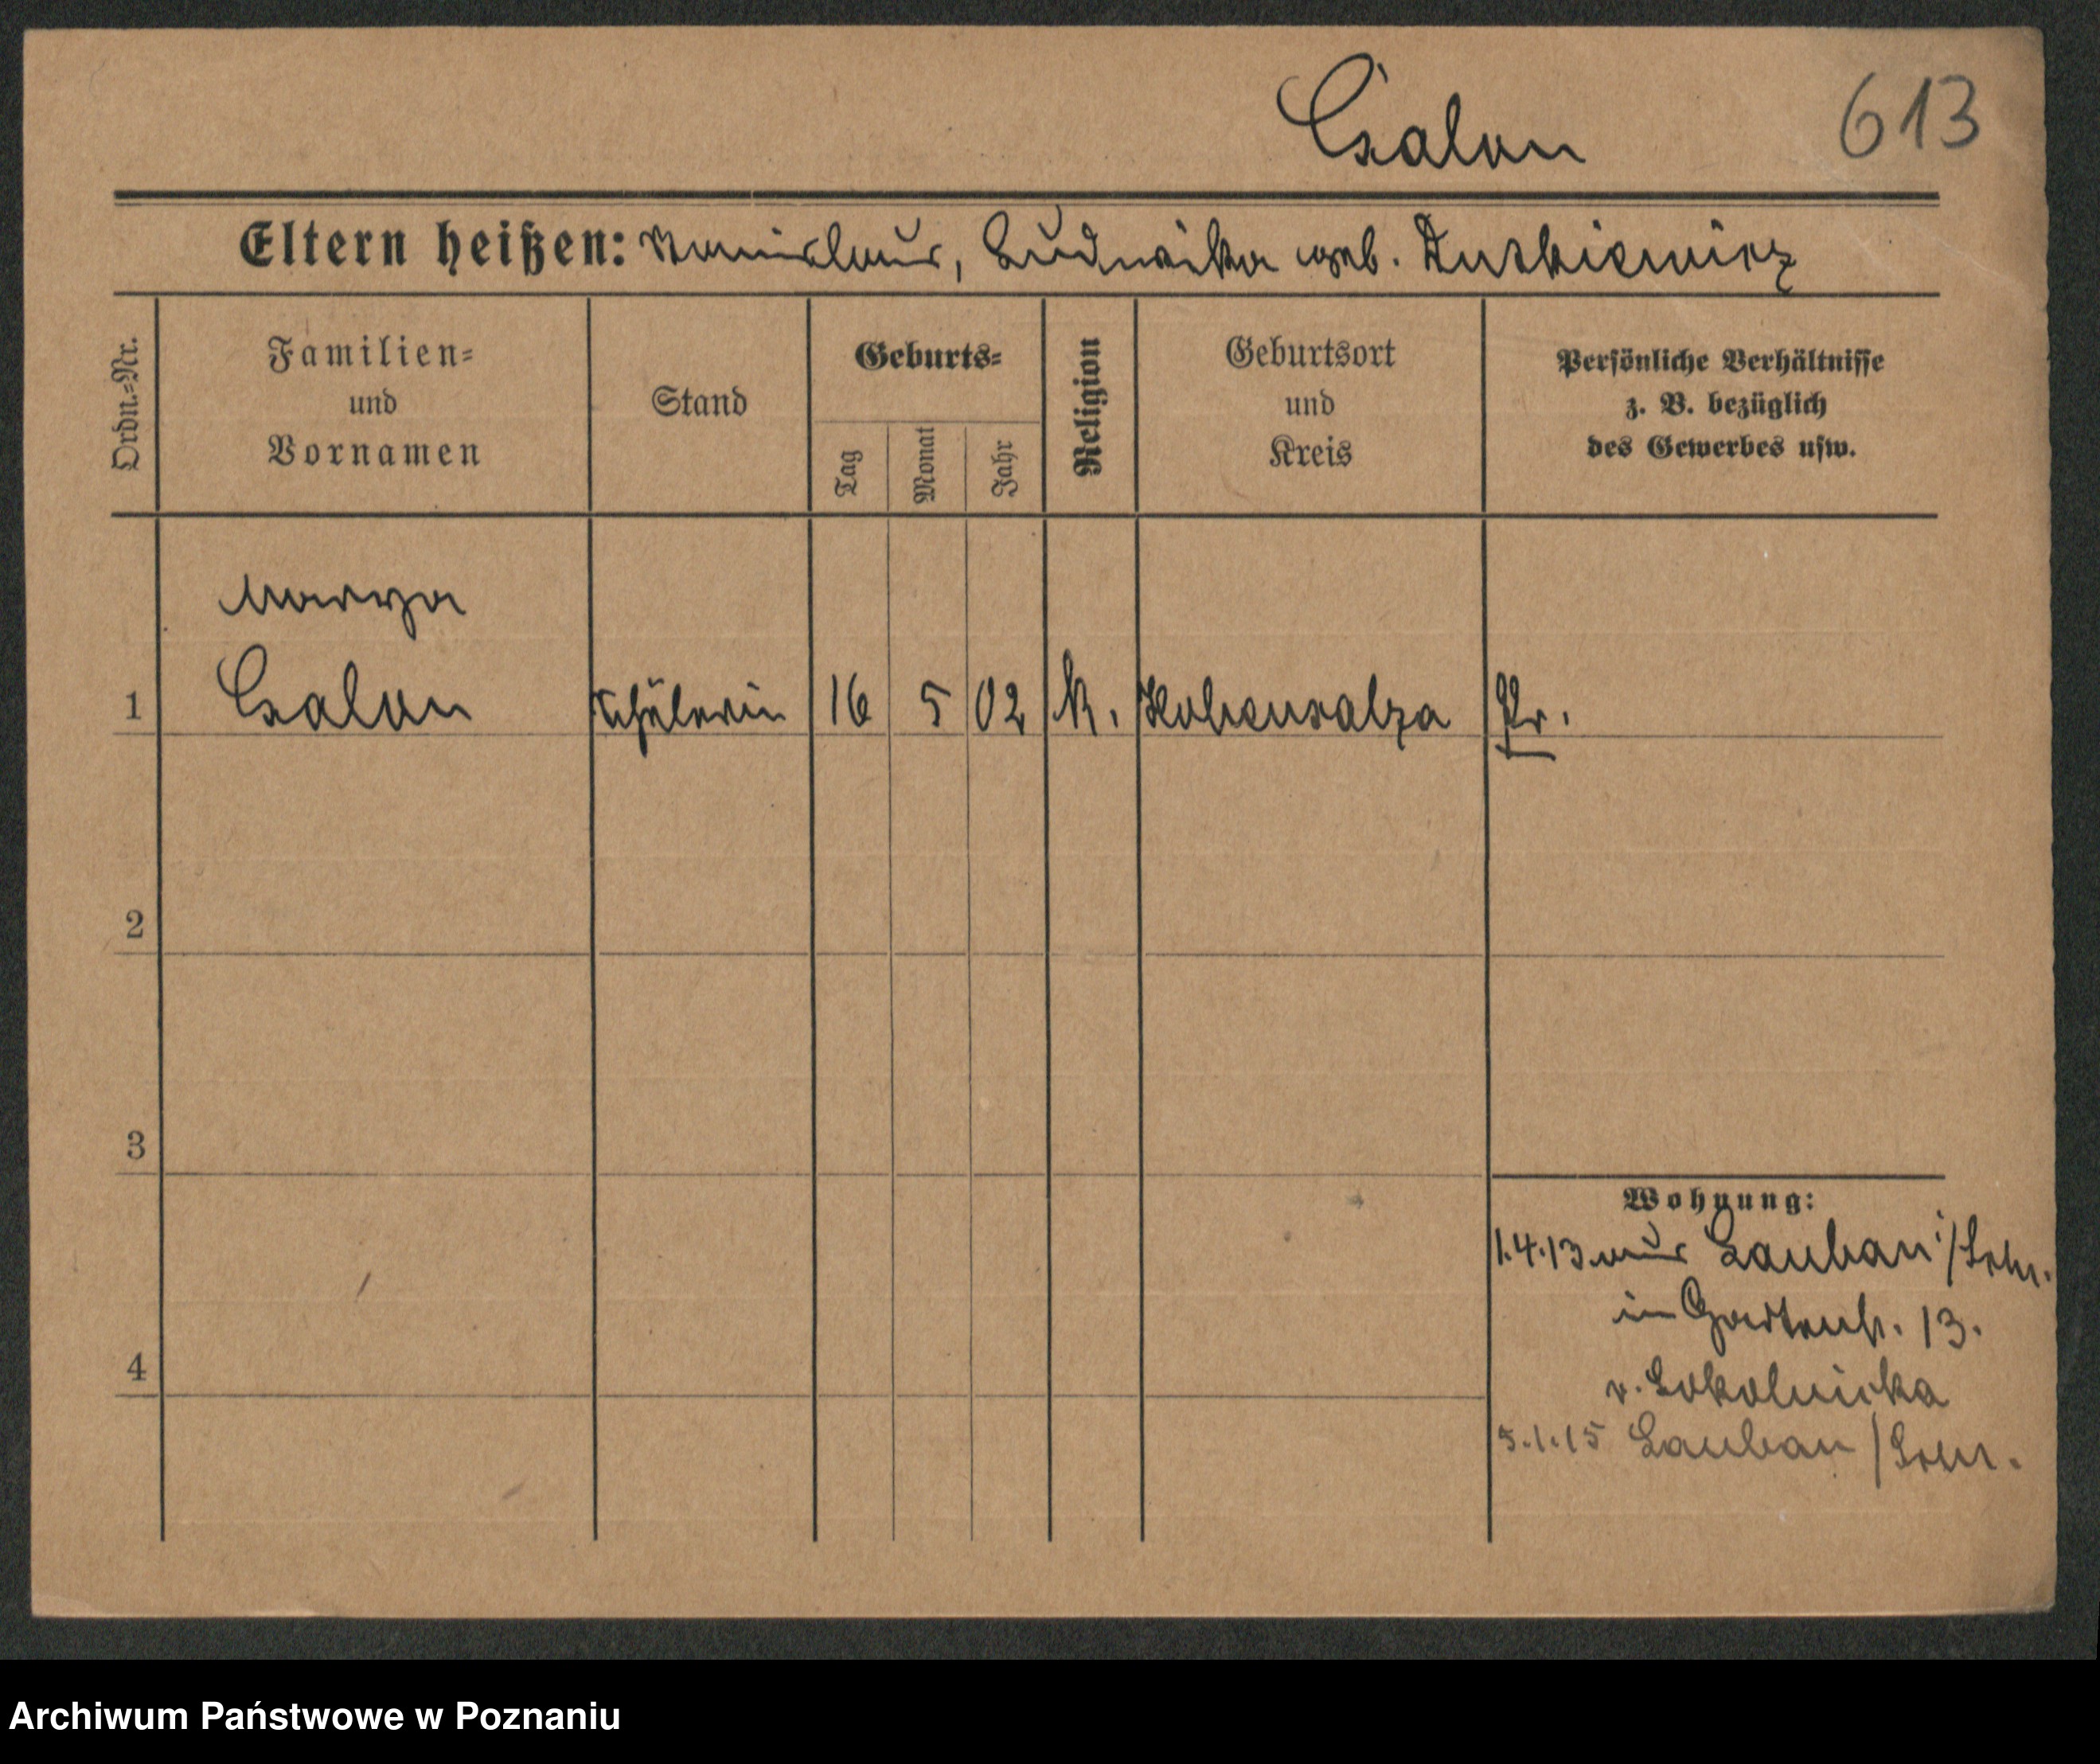 Czalon
613
Eltern heißen: Stanislaus, Ludwika geb.
Ordn.-Nr.
Familien-
und
Vornamen
Stand
Geburts-
Tag
Monat
Jahr
Religion
Geburtsort
und
Kreis
Persönliche Verhältnisse
z. B. bezüglich
des Gewerbes usw.
Marya
1 Czalon Schülerin 16 5 02 K. Hohensalza Pr.
2
3
4
Wohnung:
1.4.13 aus Lauban /Schl.
in Gartenstr. 13.
v. Sokolnicka
5.1.15 Lauban /Schl.
Archiwum Państwowe w Poznaniu